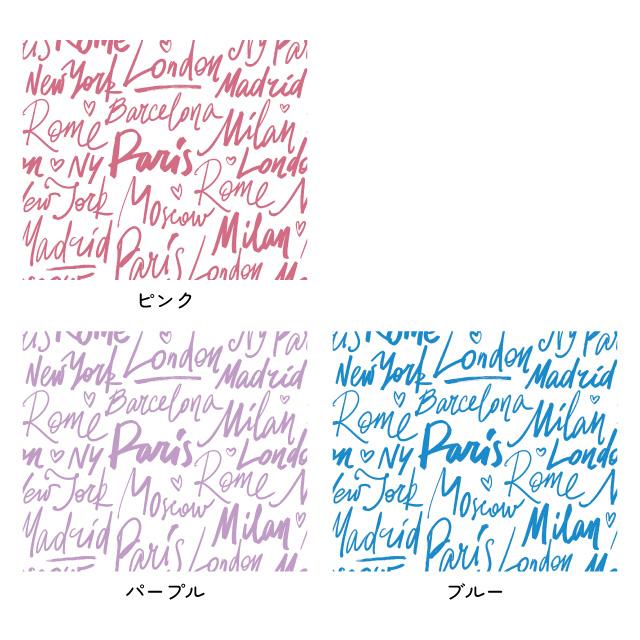 us Rome London Ny Par
New York London Madrid
Rome Barcelona Milan
Ny Paris Londo
ew York Moscow Rome
Madrid Paris Milan
London
ピンク
us Rome London Ny Par
New York Madrid
Rome Barcelona Milan
Ny Paris Londo
ew York Moscow Rome
Madrid Paris Milan
London
パープル
us Rome London Ny Par
New York Madrid
Rome Barcelona Milan
Ny Paris Londo
ew York Moscow Rome
Madrid Paris Milan
London
ブルー